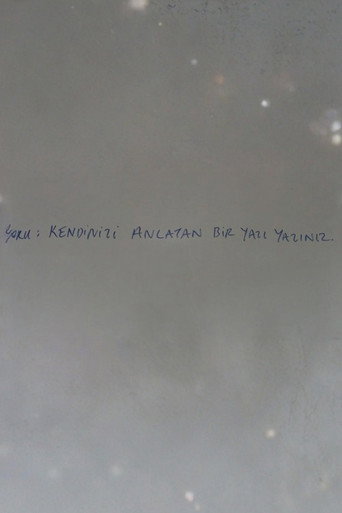 Soru: KENDİNİZİ ANLATAN BİR YAZI YAZINIZ.